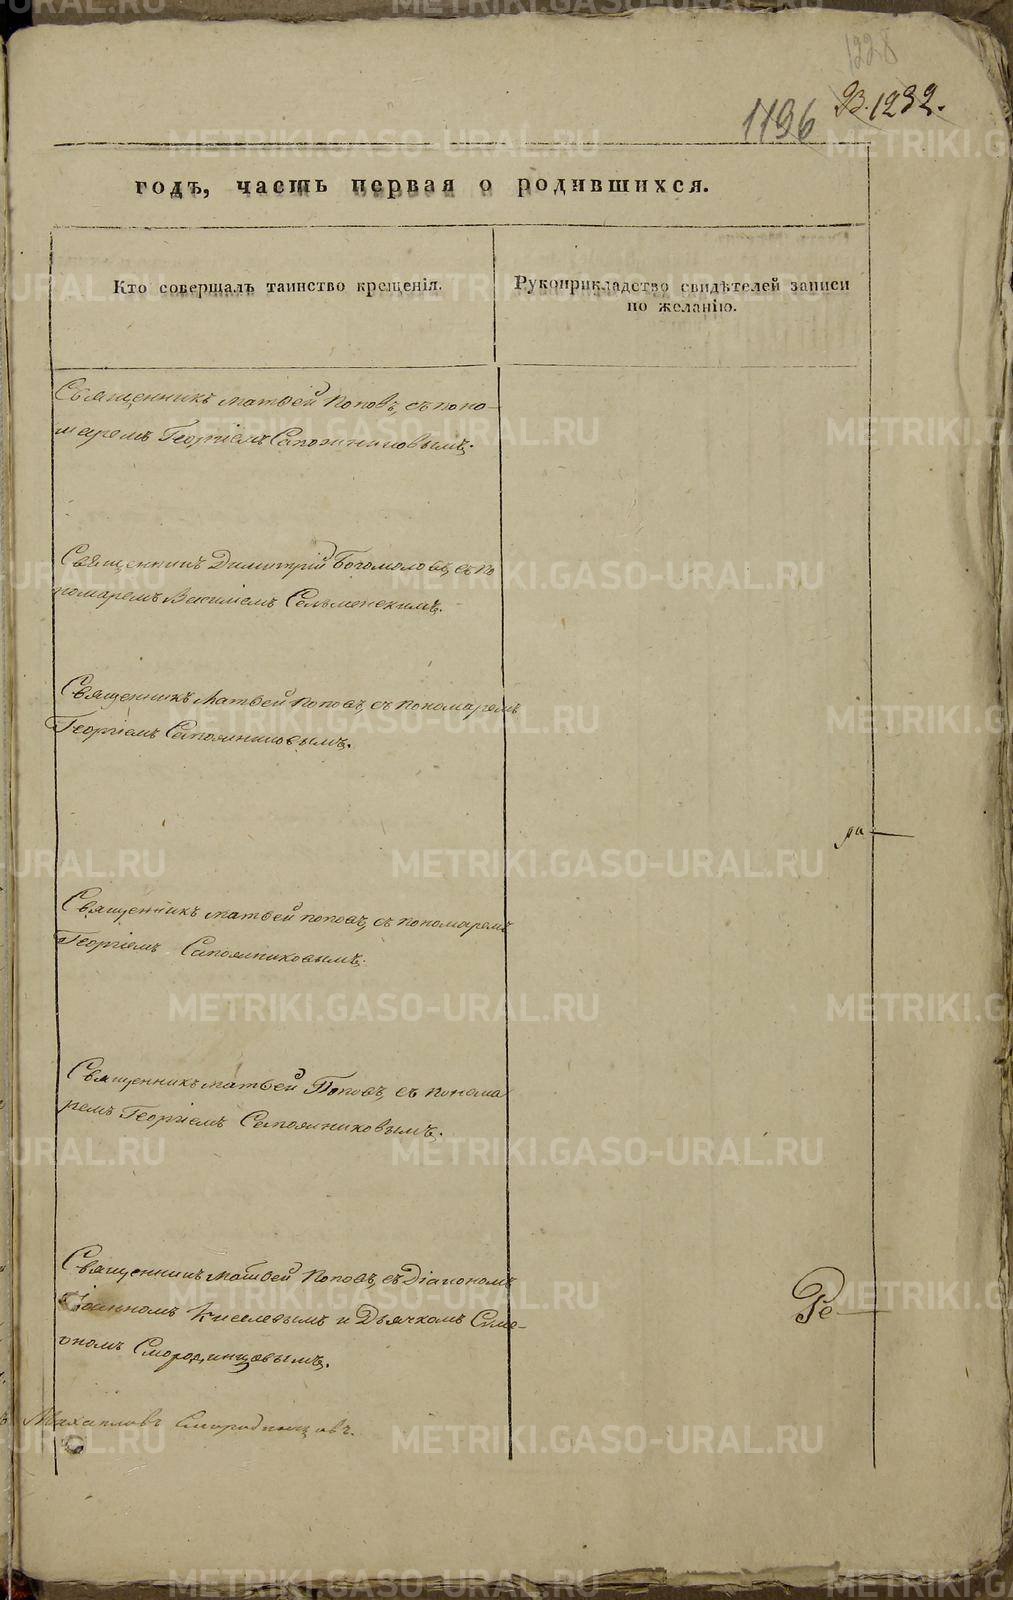 1228
1196
В. 1232.
годъ, часть первая о родившихся.
Кто совершалъ таинство крещенія.
Рукоприкладство свидѣтелей записи
по желанію.
Священникъ Матѳей Поповъ, съ поно-
маремъ Георгіемъ Сапожниковымъ.
Священникъ Димитрій Богомоловъ, съ по
номаремъ Василіемъ
Священникъ Матѳей Поповъ, съ пономаремъ
Георгіемъ Сапожниковымъ.
ра
Священникъ Матѳей Поповъ, съ пономаремъ
Георгіемъ Сапожниковымъ.
Священникъ Матѳей Поповъ, съ понома
ремъ Георгіемъ Сапожниковымъ.
Священникъ Матѳей Поповъ, съ Діакономъ
Іоанномъ Киселевымъ и Дьячкомъ Симе-
ономъ Смородинцовымъ.
Ре
Смородинцовъ.
METRIKI.GASO-URAL.RU